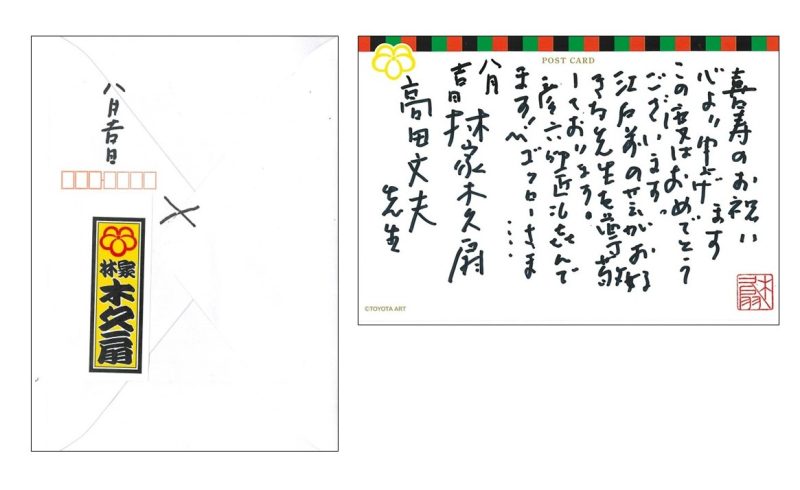 八月吉日
林家
木久扇
POST CARD
喜寿のお祝い
心より申上げます
この度はおめでとう
ございます。
江戸前の芸がお好
きな先生を尊敬
しております。
彦六師匠も
ます!
八月
吉日 林家木久扇
高田文夫
先生
©TOYOTA ART